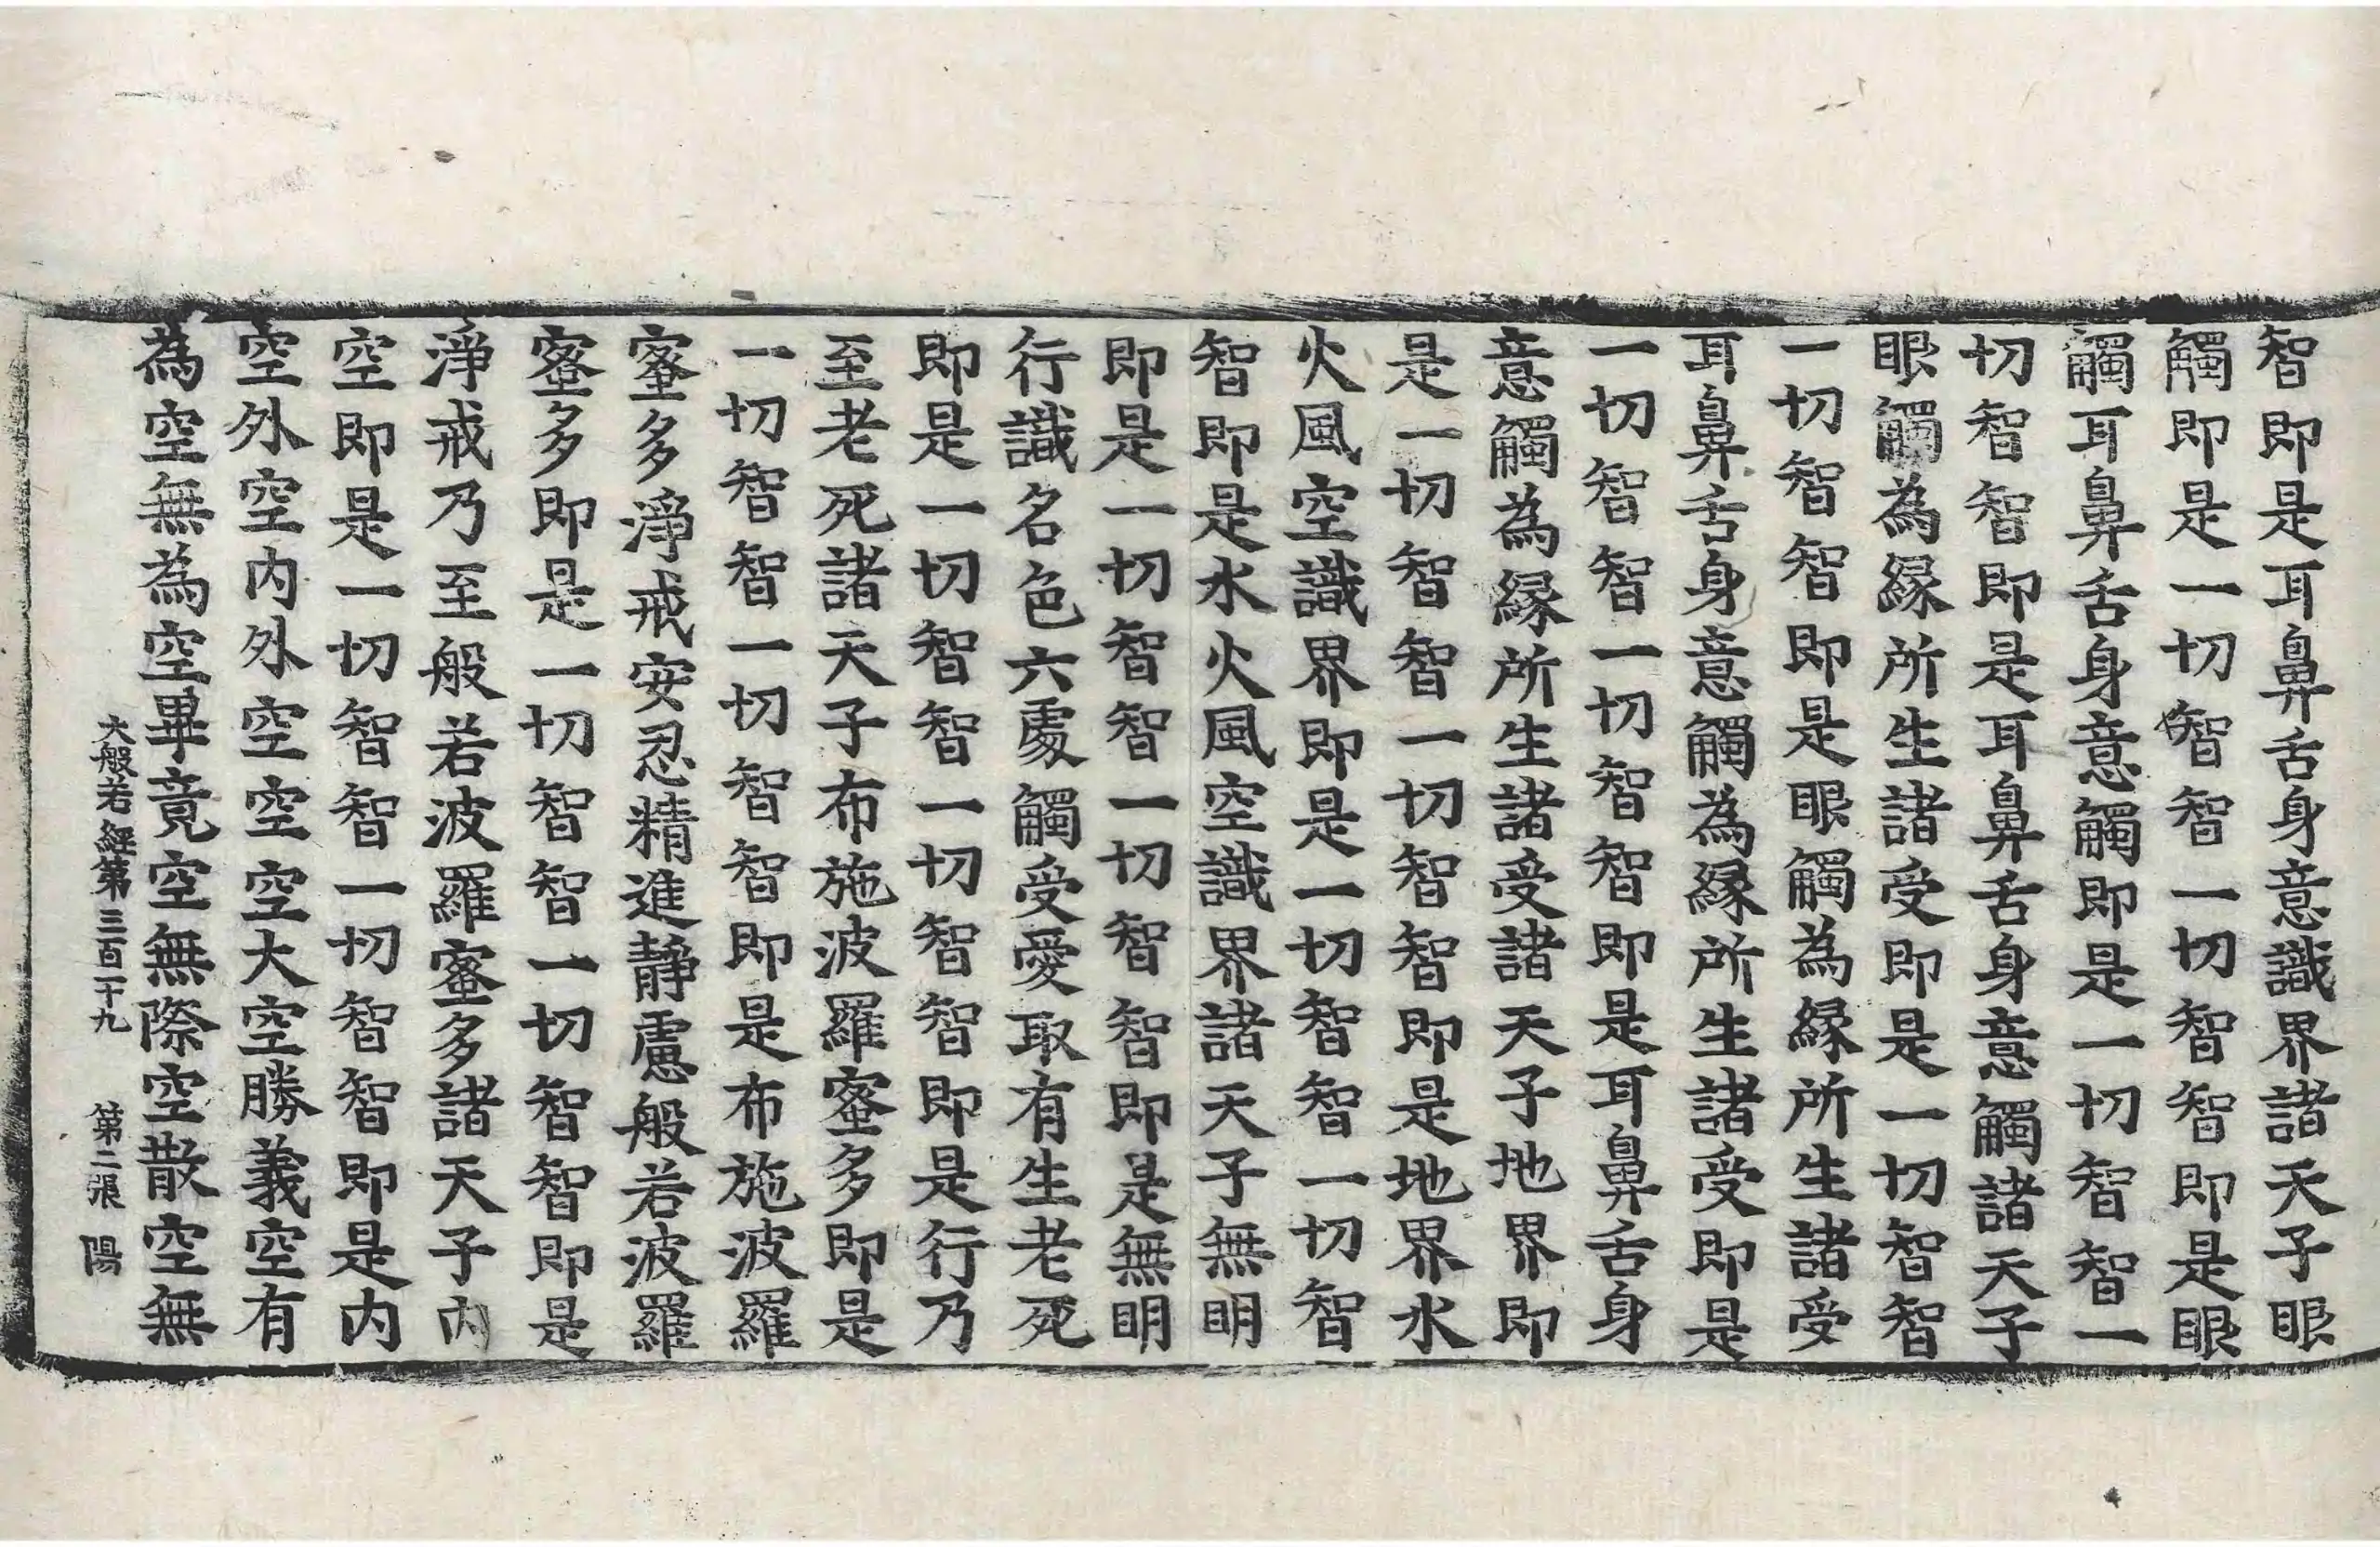 智即是耳鼻舌身意識界諸天子眼
觸即是一切智智一切智智即是眼
觸耳鼻舌身意觸即是一切智智一
切智智即是耳鼻舌身意觸諸天子
眼觸為緣所生諸受即是一切智智
一切智智即是眼觸為緣所生諸受
耳鼻舌身意觸為緣所生諸受即是
一切智智一切智智即是耳鼻舌身
意觸為緣所生諸受諸天子地界即
是一切智智一切智智即是地界水
火風空識界即是一切智智一切智
智即是水火風空識界諸天子無明
即是一切智智一切智智即是無明
行識名色六處觸受愛取有生老死
即是一切智智一切智智即是行乃
至老死諸天子布施波羅蜜多即是
一切智智一切智智即是布施波羅
蜜多淨戒安忍精進靜慮般若波羅
蜜多即是一切智智一切智智即是
淨戒乃至般若波羅蜜多諸天子內
空即是一切智智一切智智即是内
空外空內外空空空大空勝義空有
為空無為空畢竟空無際空散空無
大般若經第三百二十九 第二張 陽